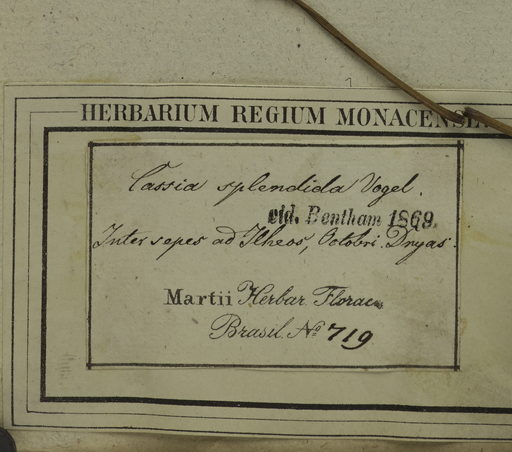 HERBARIUM REGIUM MONACENSE.
Cassia splendida Vogel.
vid. Bentham 1869.
Inter sepes ad Ilheos, Octobri. Dryas.
Martii Herbar. Florae
Brasil. No 719